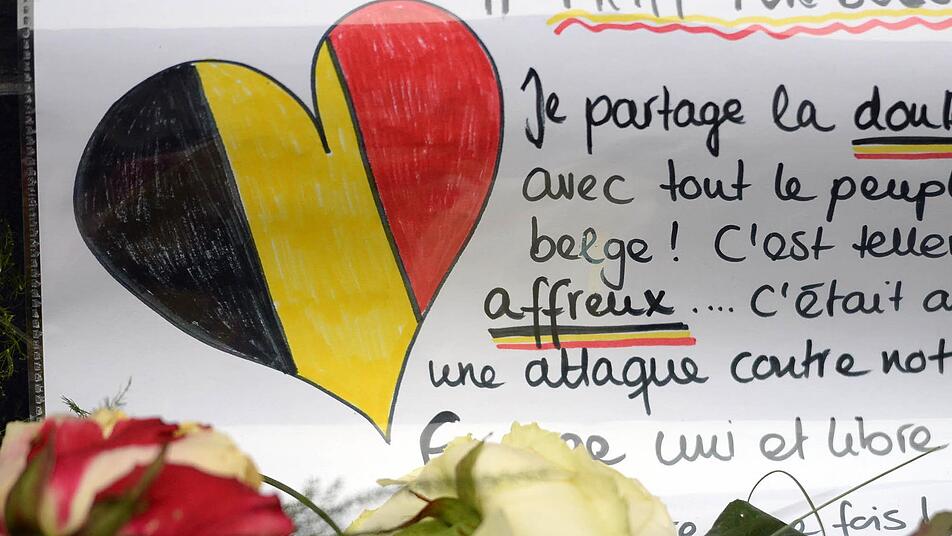 Je partage la doul
avec tout le peupl
belge ! C'est teller
affreux .... C'était a
une attaque contre not
uni et libre
fois